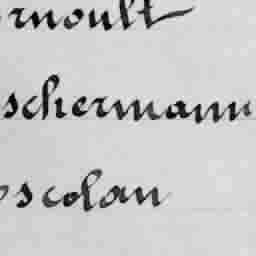 rnoult
schermann
oscolan